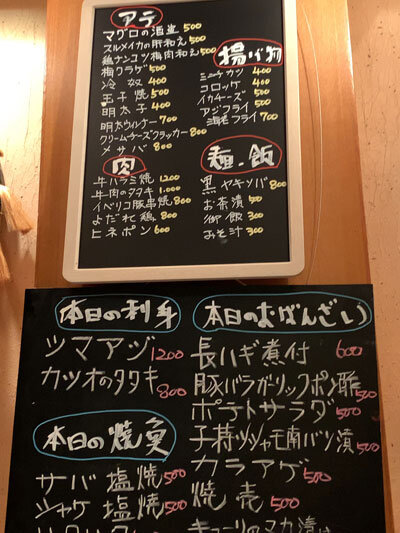 アテ
マグロの酒盗 500
スルメイカの肝和え 500
鶏ナンコツ梅肉和え 500
梅クラゲ 500
冷奴 400
玉子焼 500
明太子 400
明太ウィンナー 700
クリームチーズクラッカー 800
〆サバ 800
揚げ物
ミニチカツ 400
コロッケ 400
イカチーズ 500
アジフライ 500
海老フライ 700
肉
牛ハラミ焼 1200
牛肉のタタキ 1.000
イベリコ豚串焼 800
よだれ鶏 800
ヒネポン 600
麺・飯
黒ヤキソバ 800
お茶漬 500
御飯 300
みそ汁 300
本日の刺身
ツマアジ 1200
カツオのタタキ 800
本日の焼魚
サバ塩焼 500
シャケ塩焼 500
本日のおばんざい
長ハギ煮付 600
豚バラガーリックポン酢 500
ポテトサラダ 500
子持シシャモ南バン漬 500
カラアゲ 500
焼売 500
キューリの